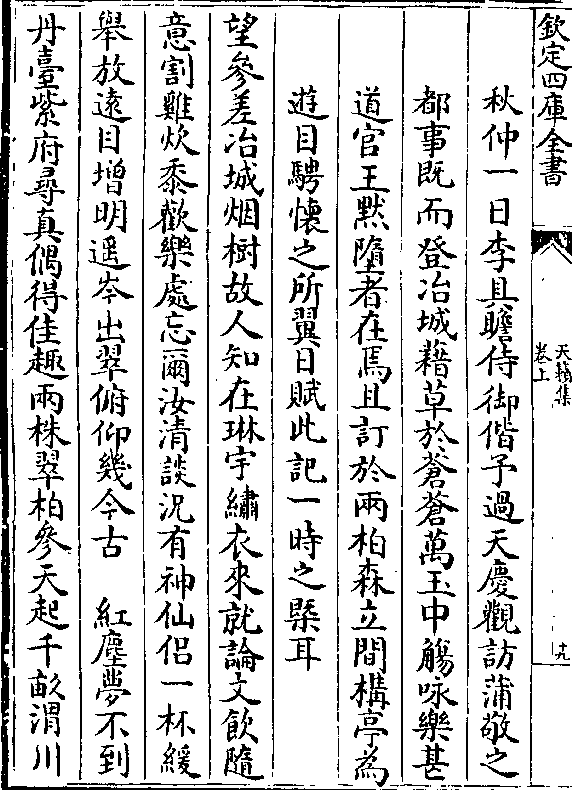 欽定四庫全書
天籟集
卷上
十九
秋仲一日李具瞻侍御偕予過天慶觀訪蒲敬之
都事既而登冶城藉草於蒼蒼萬玉中觴咏樂甚
道官王默隨者在焉且訂於兩柏森立間構亭為
遊目騁懷之所翼日賦此記一時之槩耳
望參差冶城烟樹故人知在琳宇繡衣來就論文飲隨
意割雞炊黍歡樂處忘爾汝清談況有神仙侣一杯緩
舉放遠目增明遥岑出翠俯仰幾今古 紅塵夢不到
丹臺紫府尋真偶得佳趣兩株翠柏參天起千畝渭川